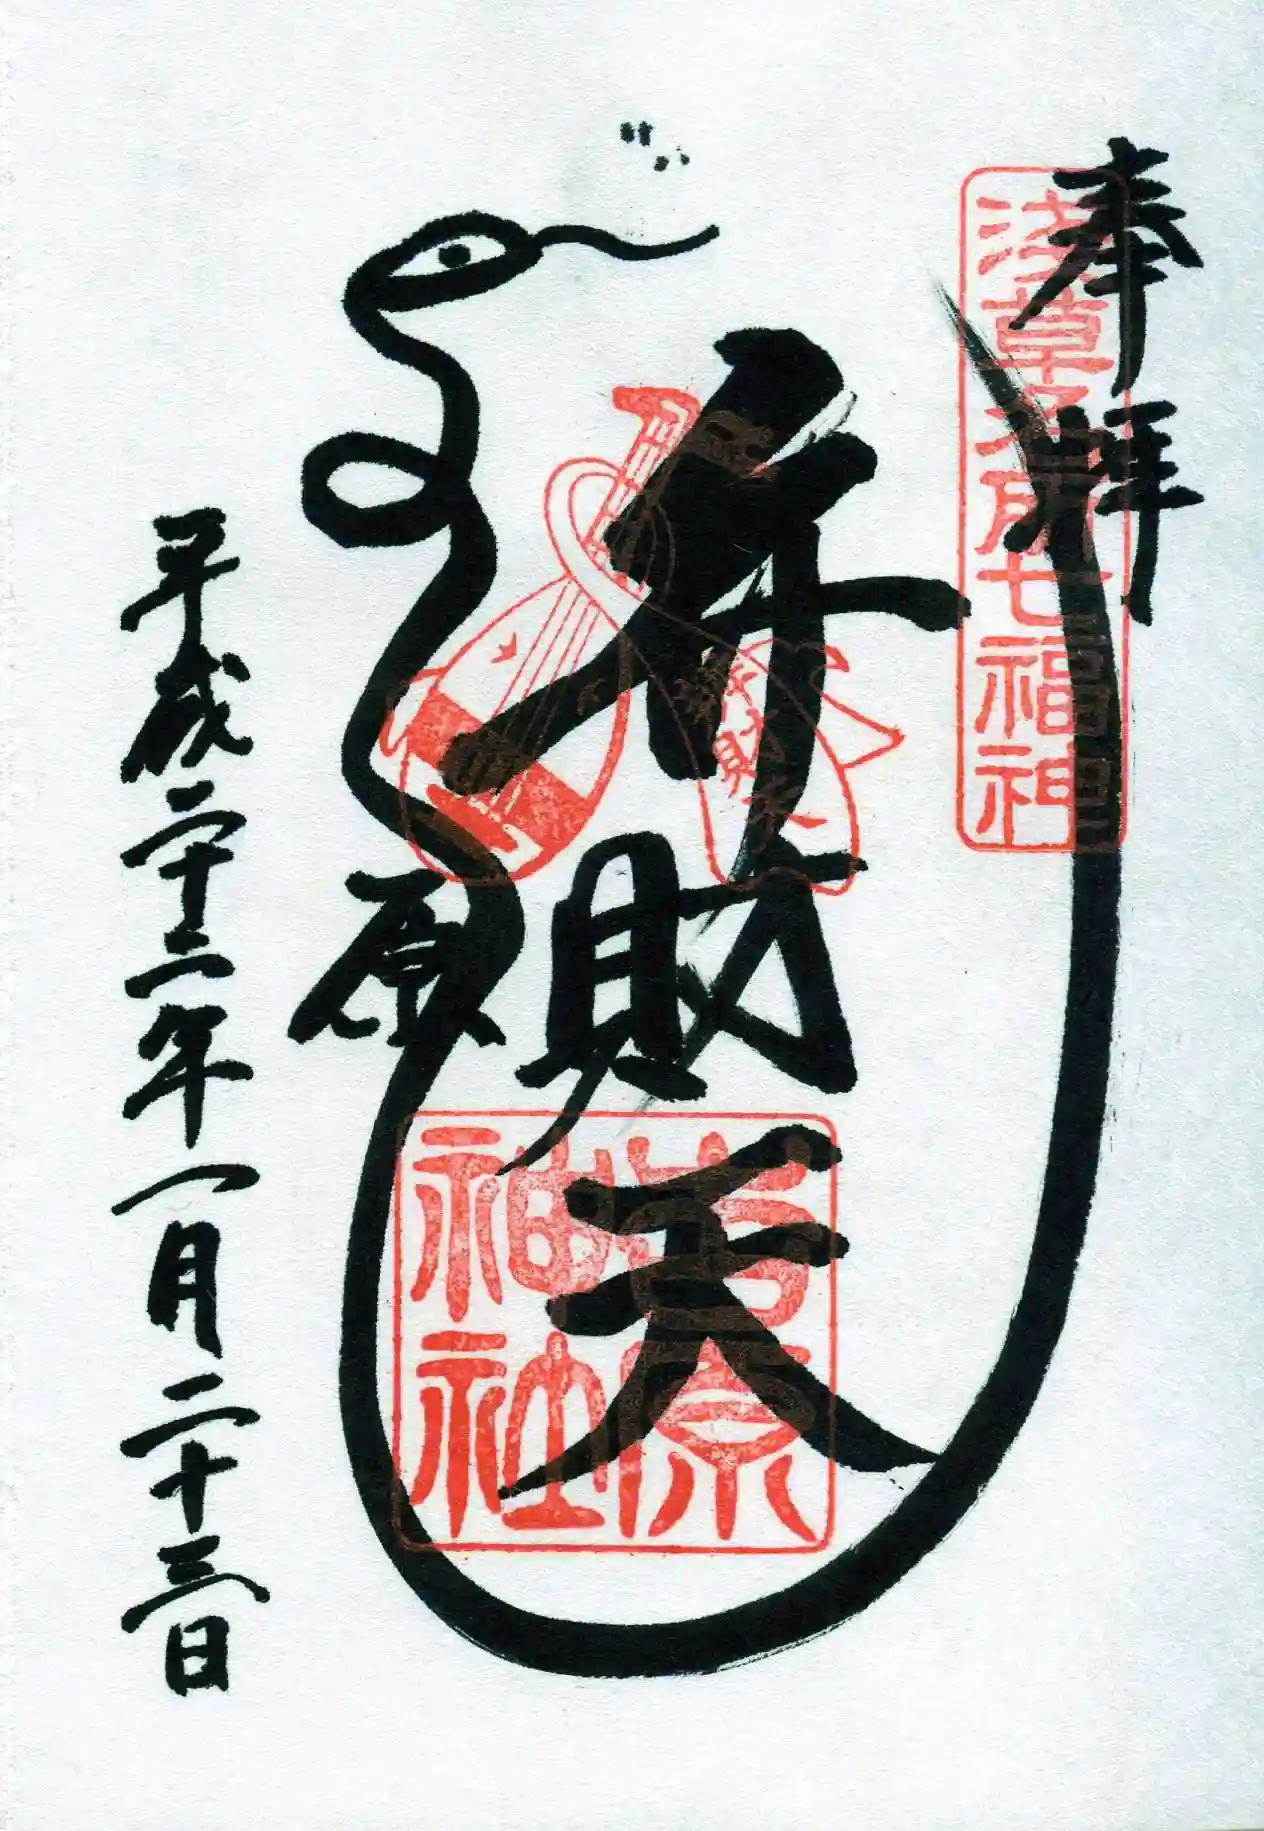 奉拝
浅草名所七福神
弁財天
吉原
神社
原
平成二十二年一月二十三日